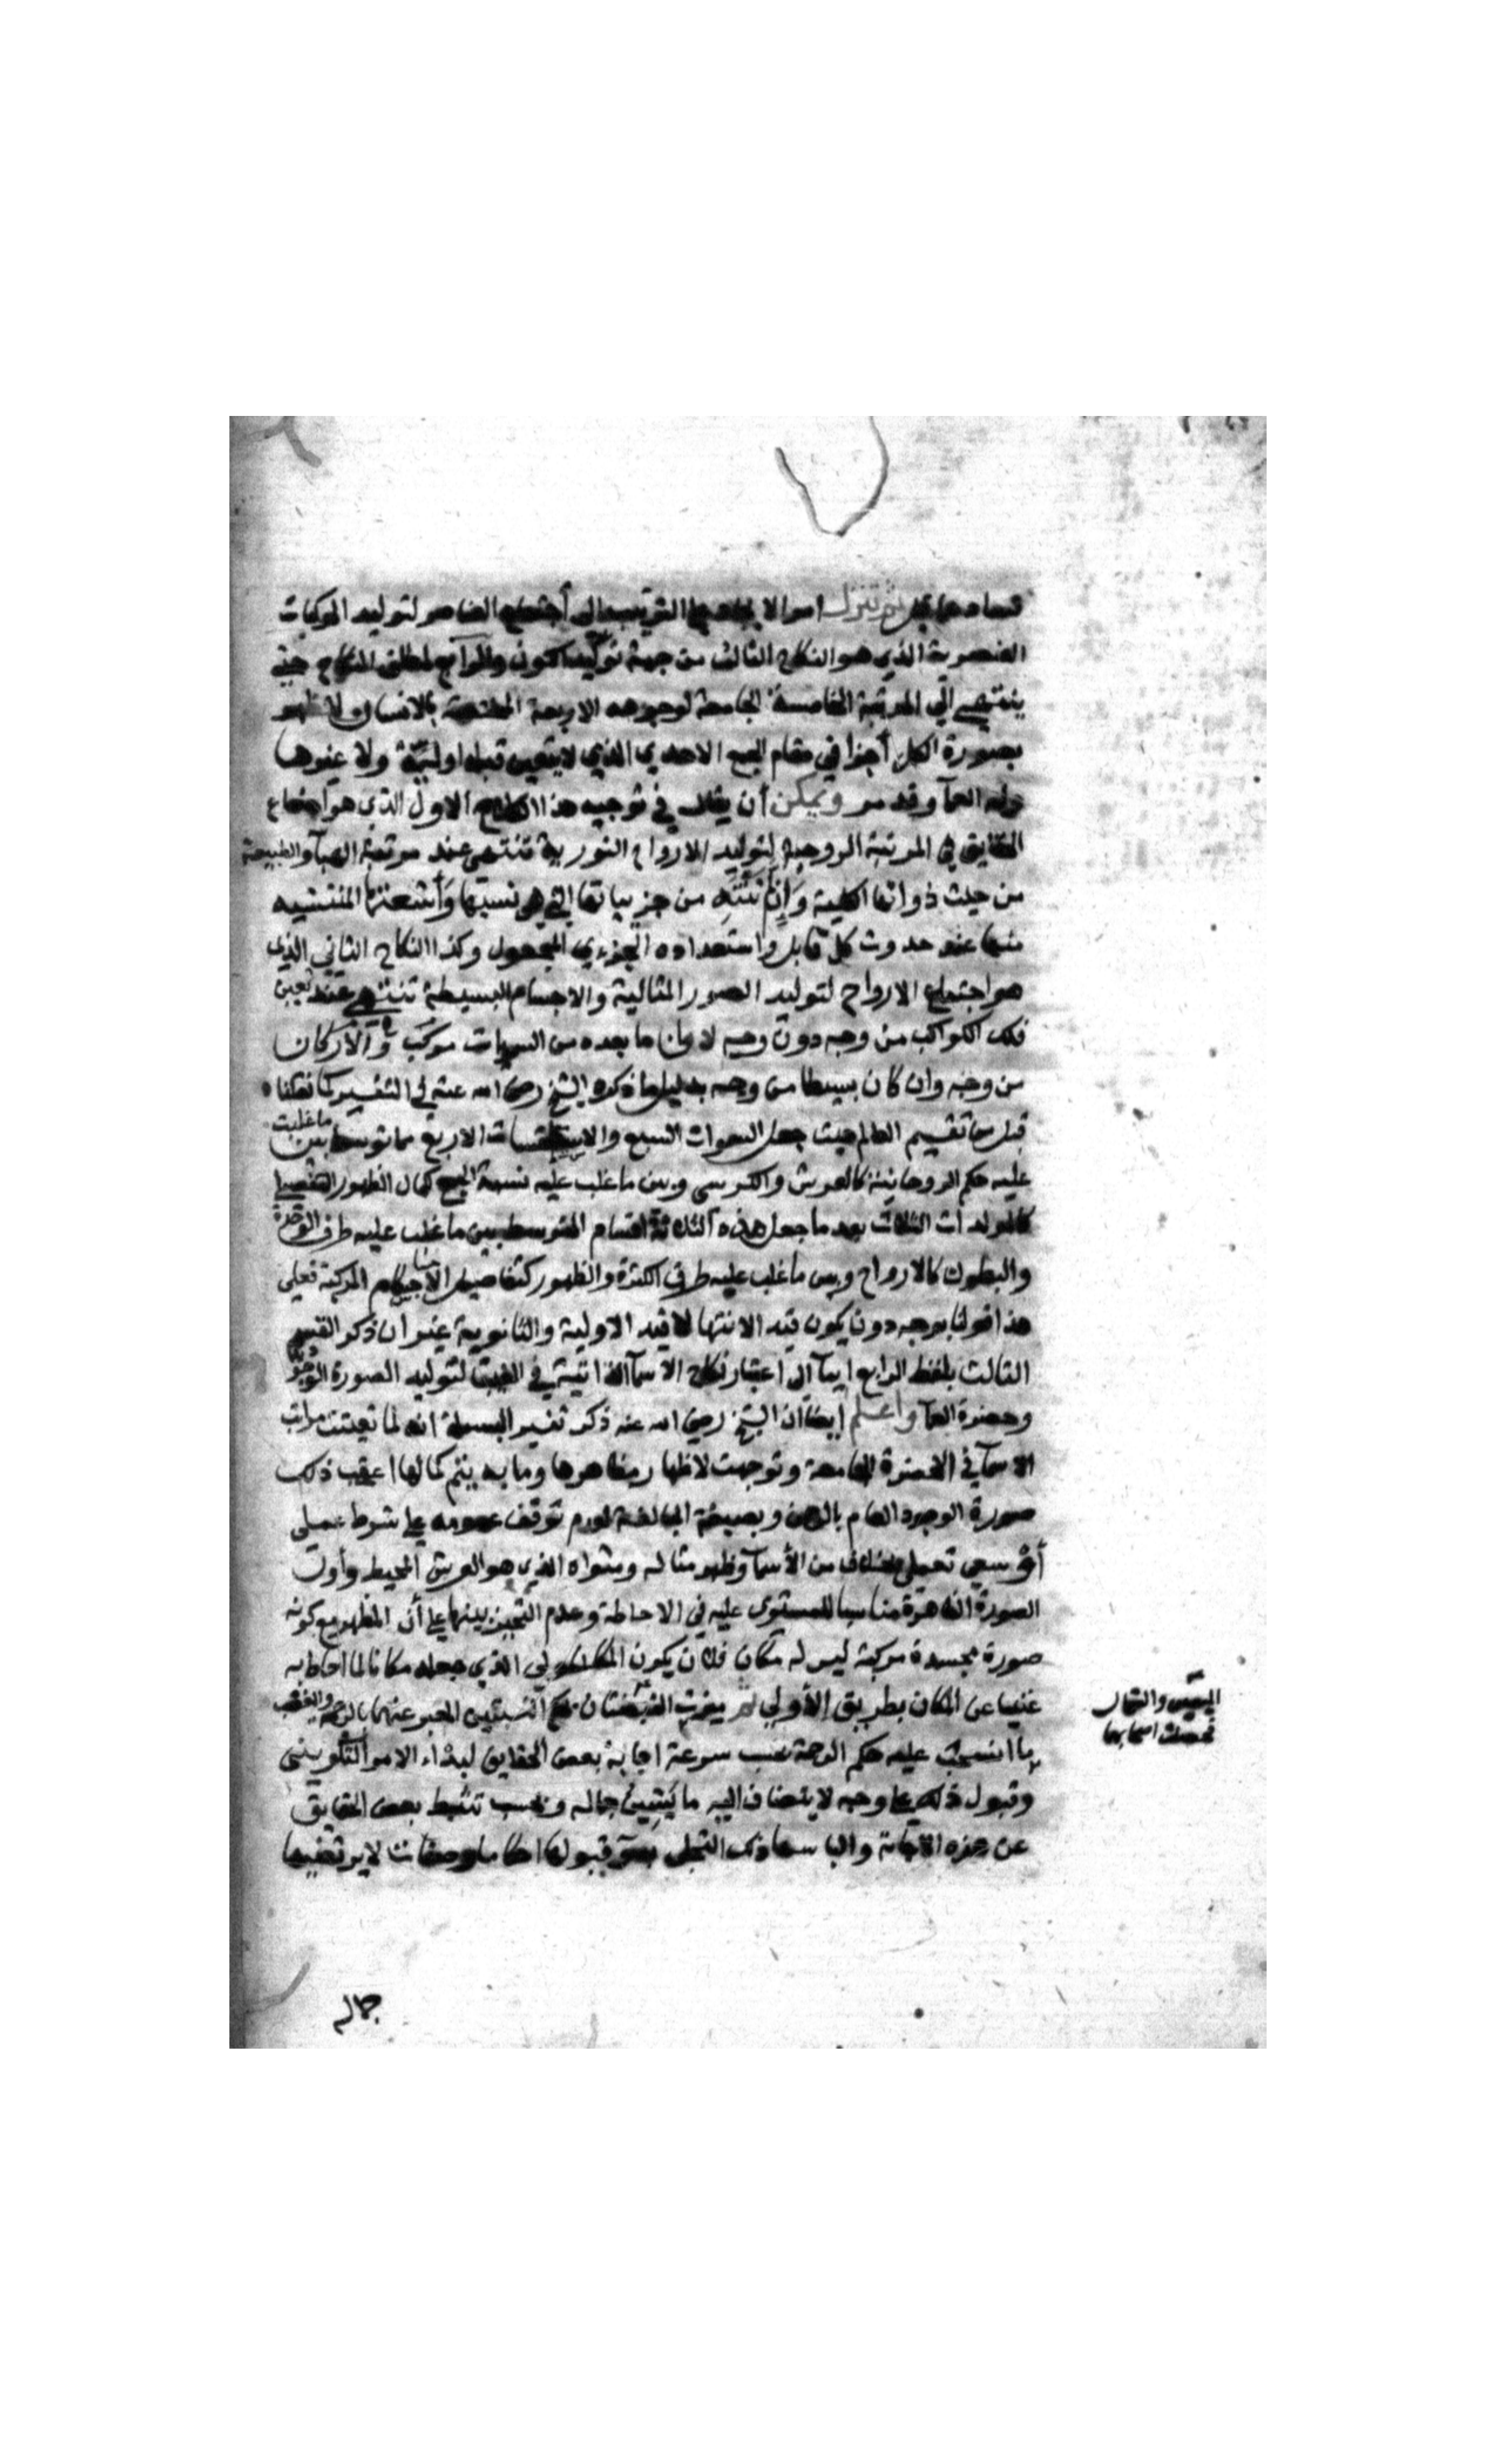 ثم تنزل امر الايجاد الى اجتماع العناصر لتوليد المركبات
العنصرية الذي هو النكاح الثالث من جهة والرابع لمطلق النكاح حتى
ينتهي الي المرتبة الخامسة الجامعة لوجوهه الاربعة المختصة بالانسان لا تظهر
بصورة الكل أجزا في مقام الجمع الاحدي الذي لا يتعين قبله اولية ولا غيرها
وله العمآ وقد مر ويمكن أن يقال في توجيه هذا النكاح الاول الذي هو اجتماع
الحقايق في المرتبة الروحية لتوليد الارواح النورية تنتهي عند مرتبة الهبآ والطبيعة
من حيث ذواتها الكلية وان لم تنته من جزيياتها التي هي نسبها وأشعتها المنتشيه
منها عند حدوث كل قابل واستعداده الجزءي المجعول وكذا النكاح الثاني الذي
هو اجتماع الارواح لتوليد الصور المثالية والاجسام البسيطة تنتهي عند تعين
فلك الكواكب من وجه دون وجه لان ما بعده من السموات مركب والأركان
من وجه وان كان بسيطا من وجه بدليل ما ذكره الشيخ رضي الله عنه في التفسير كما نقلنا
قبل من تقسيم العالم حيث جعل السموات السبع والاسطقسات الاربع مما توسط بين ما غلبت
عليه حكم الروحانية كالعرش والكرسي وبين ما غلب عليه نسبة الجمع كمال الظهور التفصيلي
كالمولدات الثلاث بعد ما جعل هذه الثلاثة اقسام المتوسط بين ما غلب عليه طرف الوحدة
والبطون كالارواح وبين ما غلب عليه طرف الكثرة والظهور كتفاصيل الاجسام المركبة فعلى
هذا قولنا بوجه دون يكون قيد الانتها لا قيد الاولية والثانوية غير ان ذكر القسم
الثالث بلفظ الرابع ايمآ الى اعتبار نكاح الأسمآ الذاتية في الغيب لتوليد الصورة الوجودية
وحضرة العمآ واعلم ايضا ان الشيخ رضي الله عنه ذكر تفسير البسملة انه لما تعينت مراتب
الاسمآ في الحضرة الجامعة وتوجهت لاظهار مظاهرها وما به يتم كمالها اعقب ذلك
صورة الوجود العام بالرحمن وبصيغة المبالغة لعدم توقف عمومه على شرط عملي
أو سعي تعملي بخلاف من الأسمآ وظهر مثاله ومستواه الذي هو العرش المحيط وأول
الصورة الظاهرة مناسبا للمستوى عليه في الاحاطة وعدم التحيز بينهما على أن المظهر مع كونه
صورة مجسدة مركبة ليس له مكان فلان يكون الذي جعله مكانا لما احاط به
غنيا عن المكان بطريق الأولي ثم ميزت القبضتان حكم النسبتين المعبر عنهما بالرحمة والغضب
ما انسحب عليه حكم الرحمة بحسب سرعة اجابة بعض الحقايق لنداء الامر التكويني
وقبول ذلك على وجه لا ينضاف اليه ما يشين جماله وبحسب تثبط بعض الحقايق
عن هذه الاجابة والباسها ذلك التجلي بسوء قبولها احكاما وصفات لا يرتضيها
اليمين والشمال
جماله